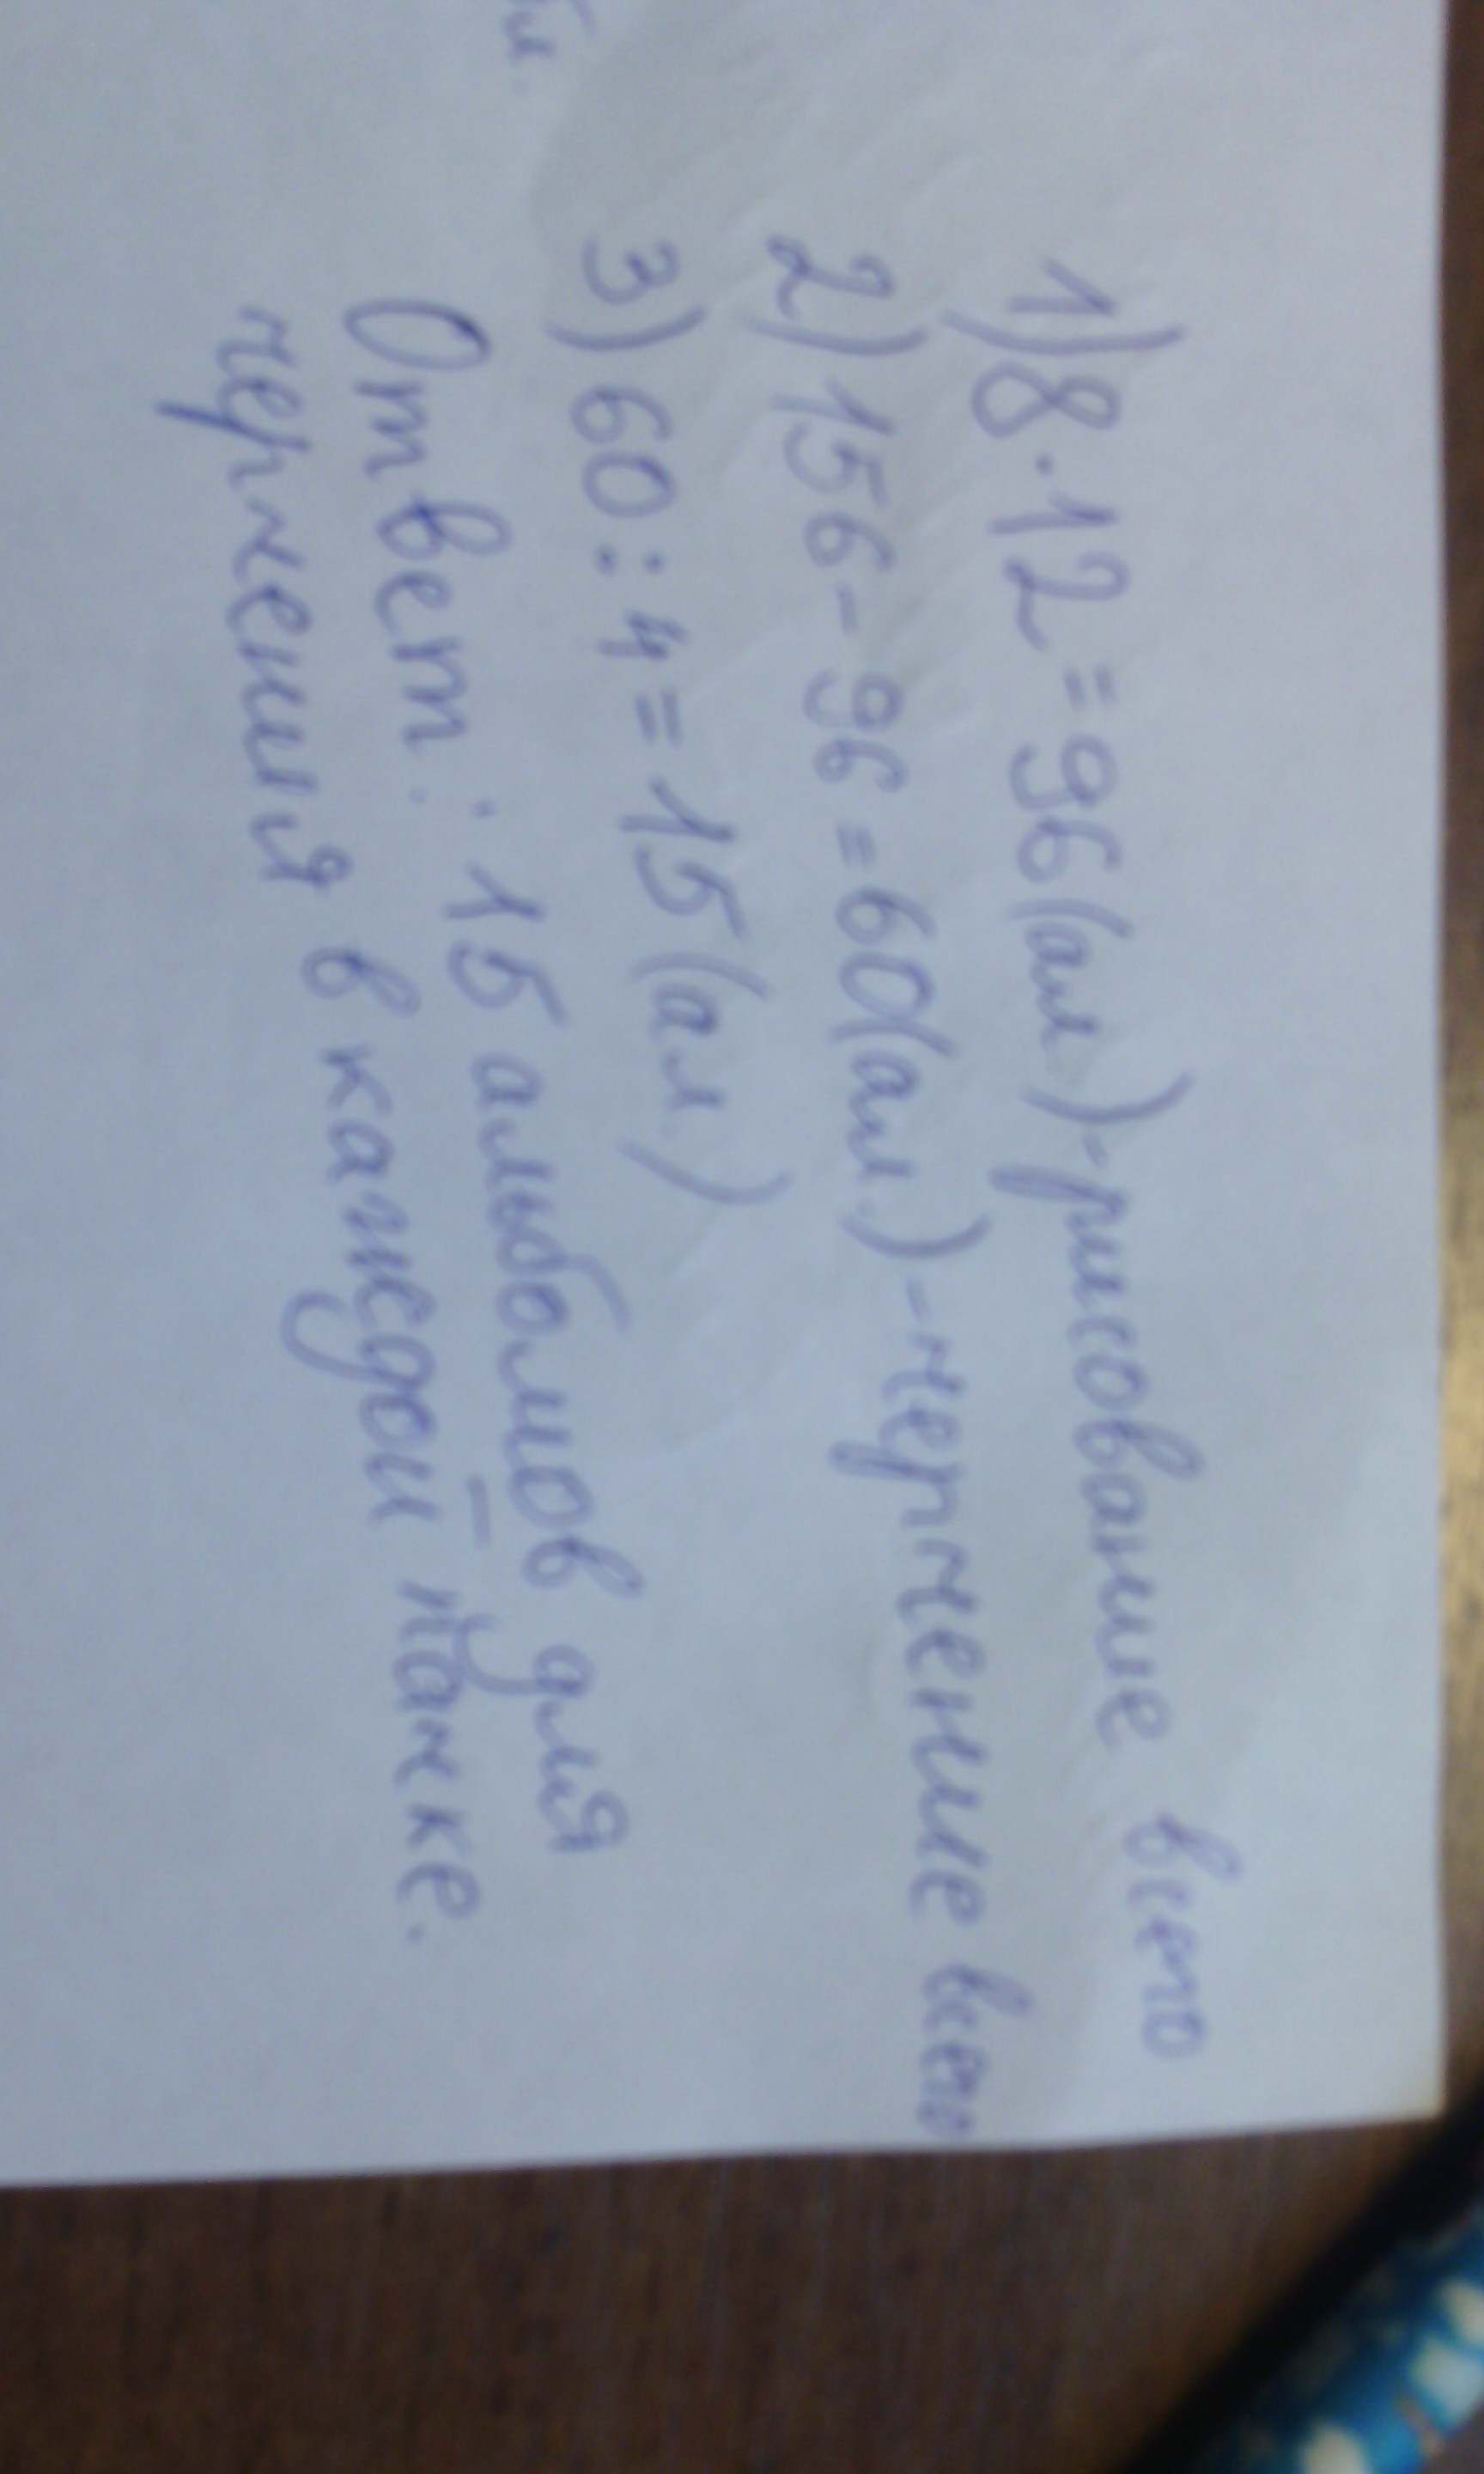 1) 8 · 12 = 96 (ал) - рисование всего
2) 156 - 96 = 60 (ал.) - черчение всего
3) 60 : 4 = 15 (ал)
Ответ: 15 альбомов для
черчения в каждой пачке.